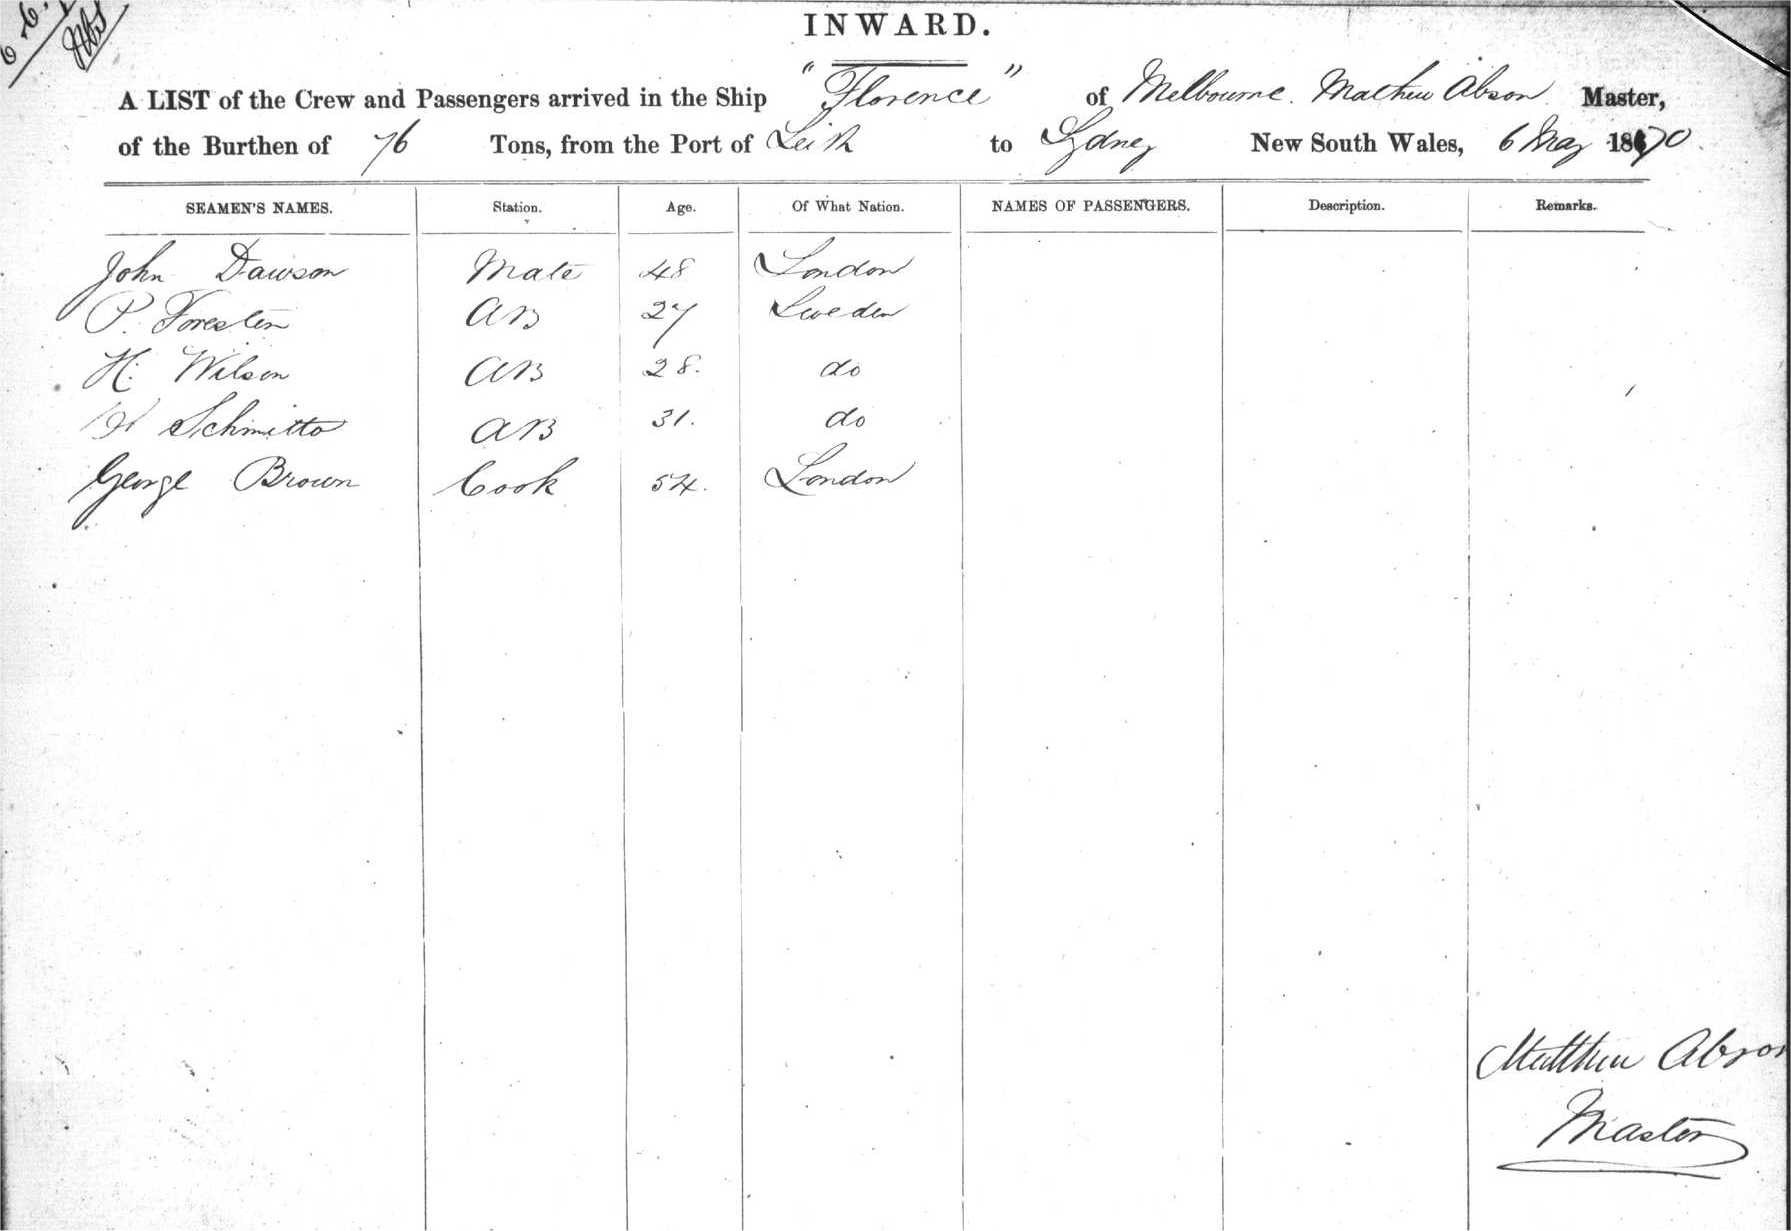 INWARD.
A LIST of the Crew and Passengers arrived in the Ship "Florence" of Melbourne. Mathew Abson Master,
of the Burthen of 76 Tons, from the Port of Leith to Sydney New South Wales, 6 May 1870
SEAMEN'S NAMES. Station. Age. Of What Nation. NAMES OF PASSENGERS. Description. Remarks.
John Dawson Mate 48 London
P. Foresten AB 27 Sweden
H. Wilson AB 28. do
H Schmitto AB 31. do
George Brown Cook 54. London
Matthew Abson
Master